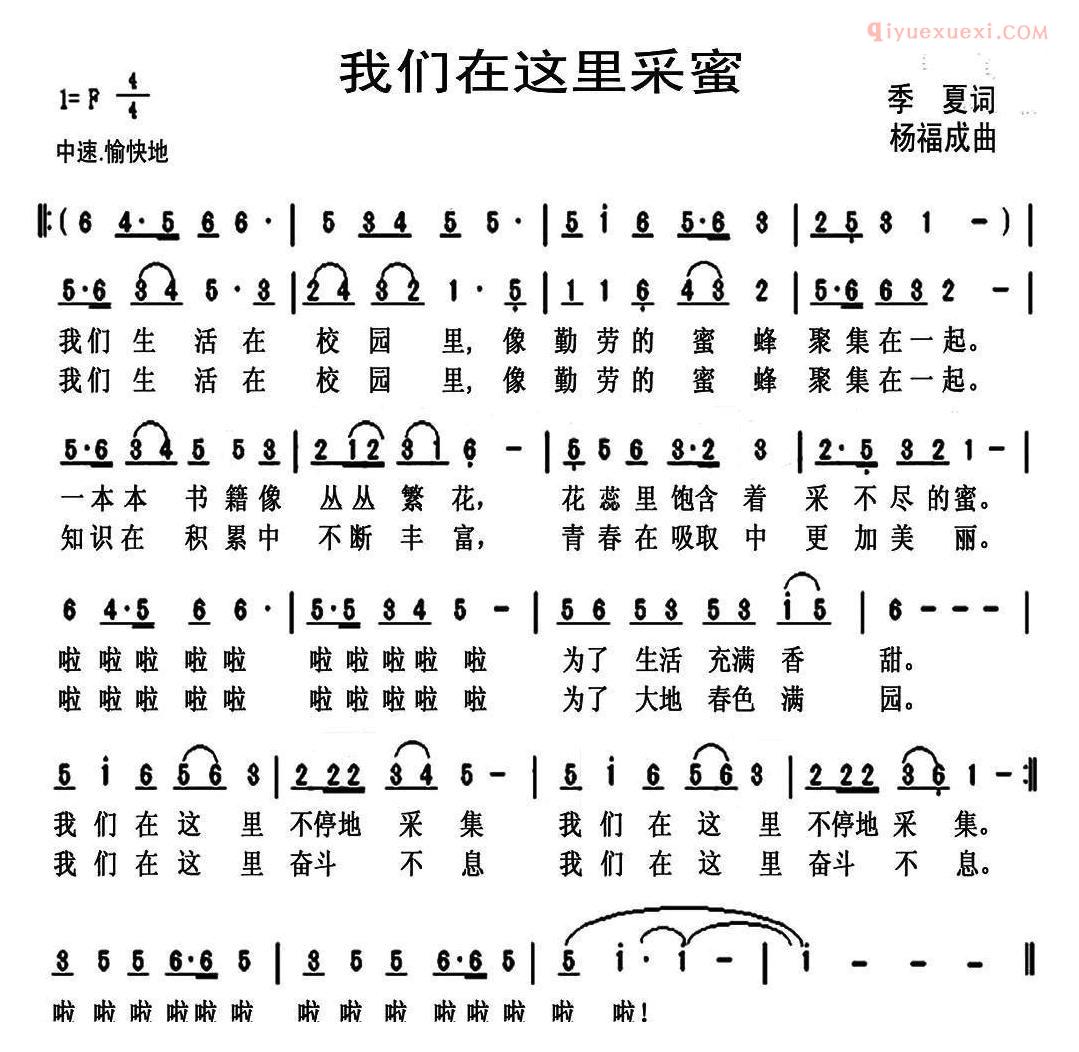 qiyuexuexi.COM
我们在这里采蜜
1= F 4/4
季 夏词
杨福成曲
中速.愉快地
‖:( 6 4·5 6 6 · | 5 3 4 5 5 · | 5 i 6 5·6 3 | 2 5 3 1 - ) |
5·6 3 4 5 · 3 | 2 4 3 2 1 · 5 | 1 1 6 4 3 2 | 5·6 6 3 2 - |
我们 生 活 在 校 园 里, 像 勤 劳 的 蜜 蜂 聚 集 在 一 起。
我们 生 活 在 校 园 里, 像 勤 劳 的 蜜 蜂 聚 集 在 一 起。
5·6 3 4 5 5 3 | 2 1 2 3 1 6 - | 5 5 6 3·2 3 | 2·5 3 2 1 - |
一 本 本 书 籍 像 丛 丛 繁 花, 花 蕊 里 饱 含 着 采 不 尽 的 蜜。
知 识 在 积 累 中 不 断 丰 富, 青 春 在 吸 取 中 更 加 美 丽。
6 4·5 6 6 · | 5·5 3 4 5 - | 5 6 5 3 5 3 i 5 | 6 - - - |
啦 啦 啦 啦 啦 啦 啦 啦 啦 啦 为了 生活 充满 香 甜。
啦 啦 啦 啦 啦 啦 啦 啦 啦 啦 为了 大地 春色 满 园。
5 i 6 5 6 3 | 2 2 2 3 4 5 - | 5 i 6 5 6 3 | 2 2 2 3 6 1 - :‖
我 们 在 这 里 不停地 采 集 我 们 在 这 里 不停地 采 集。
我 们 在 这 里 奋斗 不 息 我 们 在 这 里 奋斗 不 息。
3 5 5 6·6 5 | 3 5 5 6·6 5 | 5 i · i - | i - - - ‖
啦 啦 啦 啦 啦 啦 啦 啦 啦 啦 啦 啦 啦 啦!